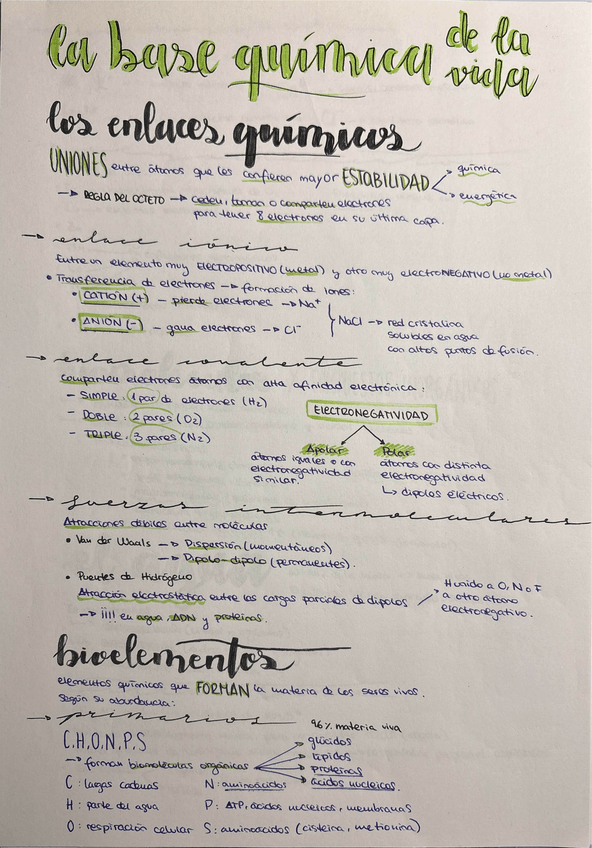 la base química de la vida
los enlaces químicos
UNIONES entre átomos que les confieren mayor ESTABILIDAD
química
energética
→ REGLA DEL OCTETO → ceden, toman o comparten electrones
para tener 8 electrones en su última capa.
→ enlace iónico
Entre un elemento muy ELECTROPOSITIVO (metal) y otro muy electroNEGATIVO (no metal)
• Transferencia de electrones → formación de iones:
• CATIÓN (+) – pierde electrones → Na⁺
• ANIÓN (-) – gana electrones → Cl⁻
NaCl → red cristalina
solubles en agua
con altos puntos de fusión.
→ enlace covalente
comparten electrones átomos con alta afinidad electrónica:
– SIMPLE: 1 par de electrones (H₂)
– DOBLE: 2 pares (O₂)
– TRIPLE: 3 pares (N₂)
ELECTRONEGATIVIDAD
Apolar
átomos iguales o con
electronegatividad
similar.
Polar
átomos con distinta
electronegatividad
↳ dipolos eléctricos.
→ fuerzas intermoleculares
Atracciones débiles entre moléculas
• Van der Waals → Dispersión (momentáneos)
→ Dipolo-dipolo (permanentes).
• Puentes de Hidrógeno
Atracción electrostática entre las cargas parciales de dipolos
H unido a O, N o F
a otro átomo
electronegativo.
→ ¡¡!! en agua, ADN y proteínas.
bioelementos
elementos químicos que FORMAN la materia de los seres vivos.
Según su abundancia:
→ primarios
96% materia viva
C.H.O.N.P.S
→ forman biomoléculas orgánicas
glúcidos
lípidos
proteínas
ácidos nucleicos.
C: largas cadenas
N: aminoácidos
H: parte del agua
P: ATP, ácidos nucleicos, membranas
O: respiración celular
S: aminoácidos (cisteína, metionina)